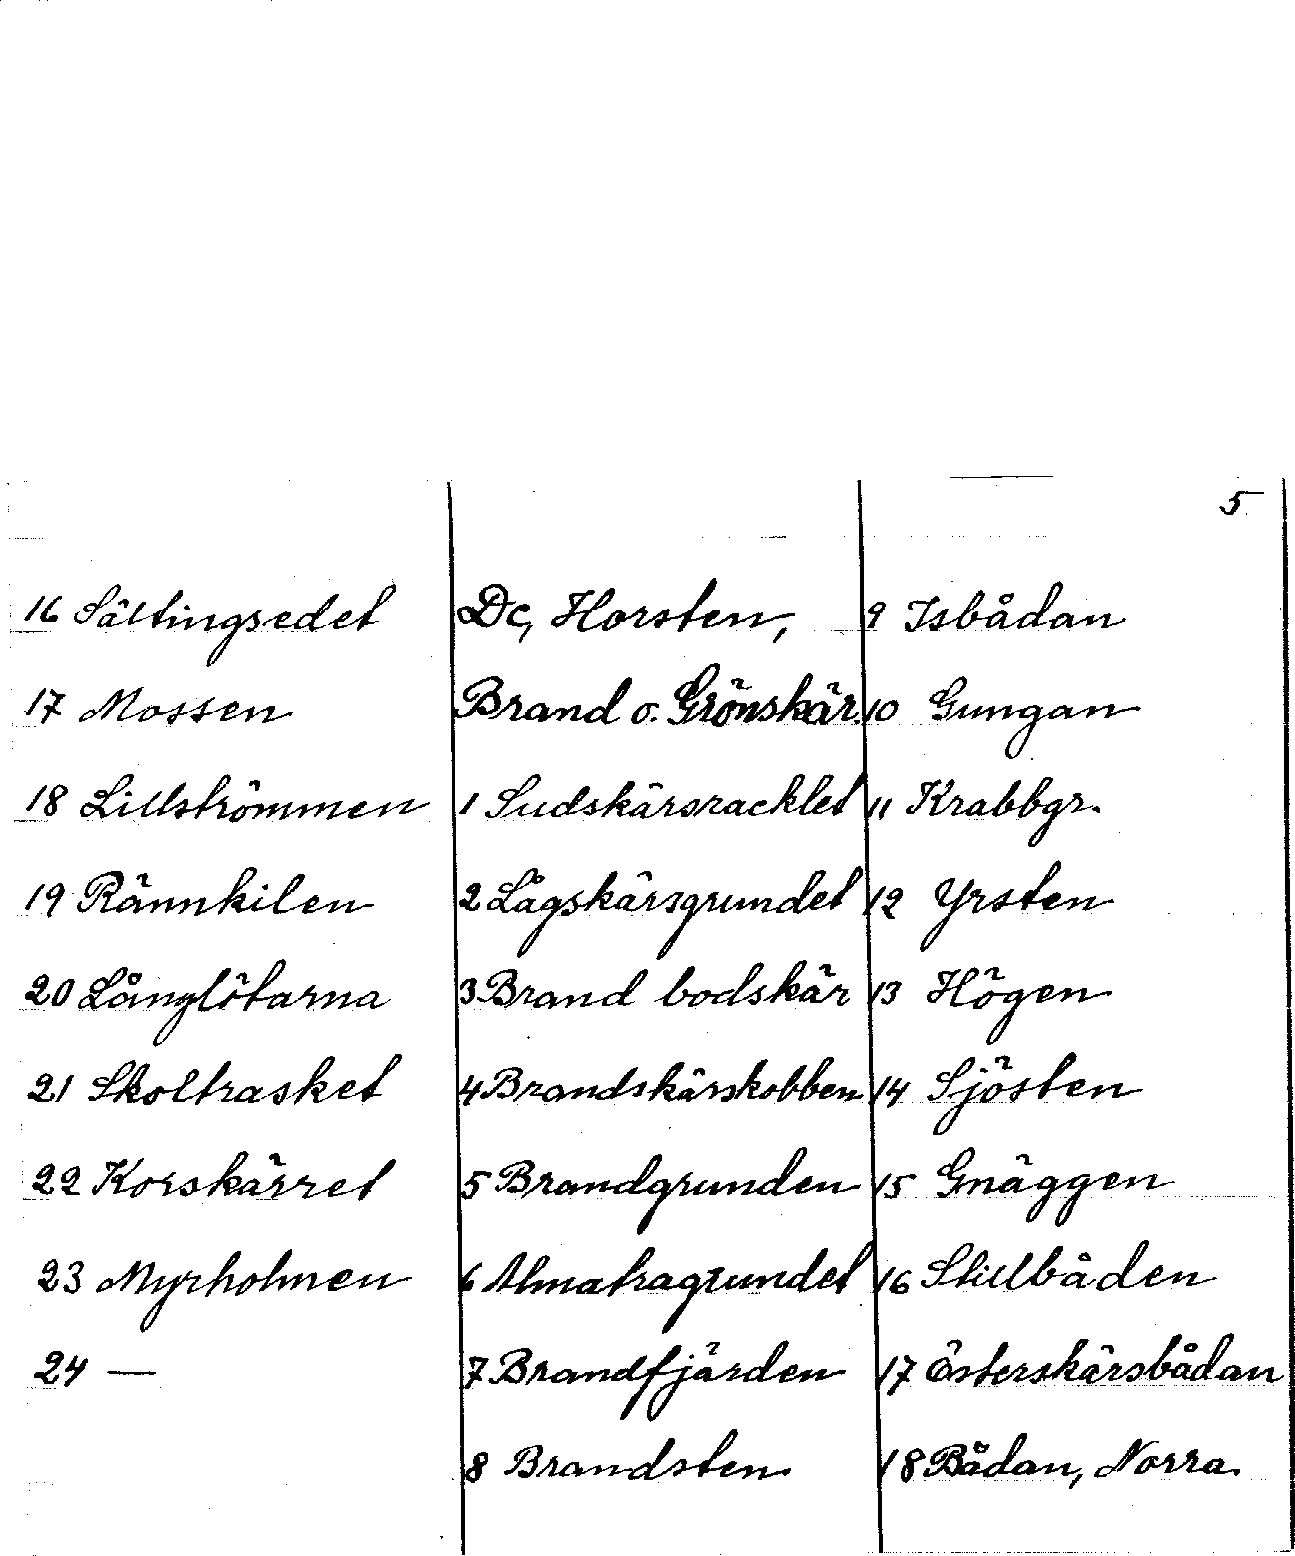 5
16 Sältingsedet
17 Mossen
18 Lillströmmen
19 Rännkilen
20 Långlötarna
21 Skoltrasket
22 Korskärret
23 Myrholmen
24 —
Dc, Horsten,
Brand o. Grönskär.
1 Sudskärsracklet
2 Lågskärsgrundet
3 Brand bodskär
4 Brandskärskobben
5 Brandgrunden
6 Almatragrundet
7 Brandfjärden
8 Brandsten
9 Isbådan
10 Gungan
11 Krabbgr.
12 Yrsten
13 Högen
14 Sjösten
15 Gnäggen
16 Stillbåden
17 Österskärsbådan
18 Bådan, Norra.